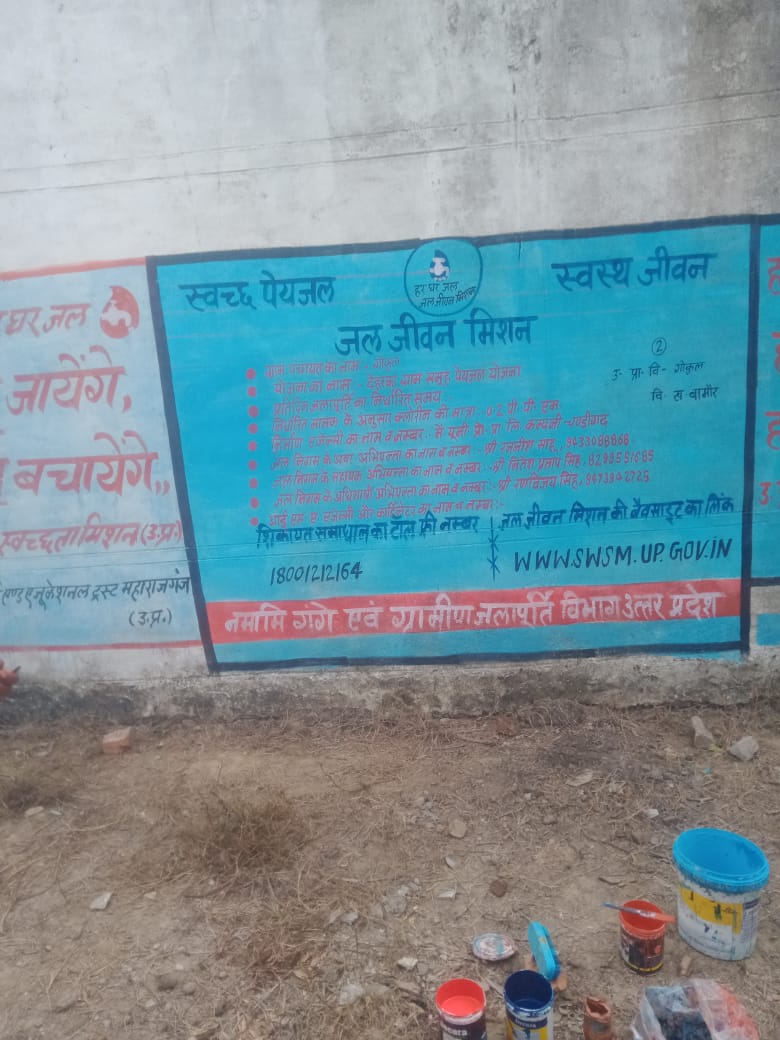 घर जल
जायेंगे,
बचायेंगे,,
स्वच्छता मिशन (उ.प्र.)
एण्ड एजूकेशनल ट्रस्ट महाराजगंज
(उ.प्र.)
स्वच्छ पेयजल
हर घर जल
जल जीवन मिशन
स्वस्थ जीवन
जल जीवन मिशन
ग्राम पंचायत का नाम :- गोकुल
योजना का नाम :- ग्राम समूह पेयजल योजना
प्रतिदिन जलापूर्ति का निर्धारित समय:
निर्धारित मानक के अनुसार क्लोरीन की मात्रा :- 0.2 पी. पी. एम
निर्माण एजेन्सी का नाम व नम्बर :- मे. प्रा. लि. कम्पनी चण्डीगढ़
जल निगम के अवर अभियन्ता का नाम व नम्बर :- श्री साहू, 9433088868
जल निगम के सहायक अभियन्ता का नाम व नम्बर :- श्री प्रताप सिंह, 8299551685
जल निगम के अधिशासी अभियन्ता का नाम व नम्बर :- श्री रणविजय सिंह, 9473942725
आई.एस.ए. एजेन्सी और कार्डिनेटर का नाम व नम्बर:-
②
उ. प्रा. वि - गोकुल
वि. ख. बामौर
शिकायत समाधान का टोल फ्री नम्बर
18001212164
जल जीवन मिशन की वैवसाइट का लिंक
WWW.SWSM.UP.GOV.IN
नमामि गंगे एवं ग्रामीण जलापूर्ति विभाग उत्तर प्रदेश